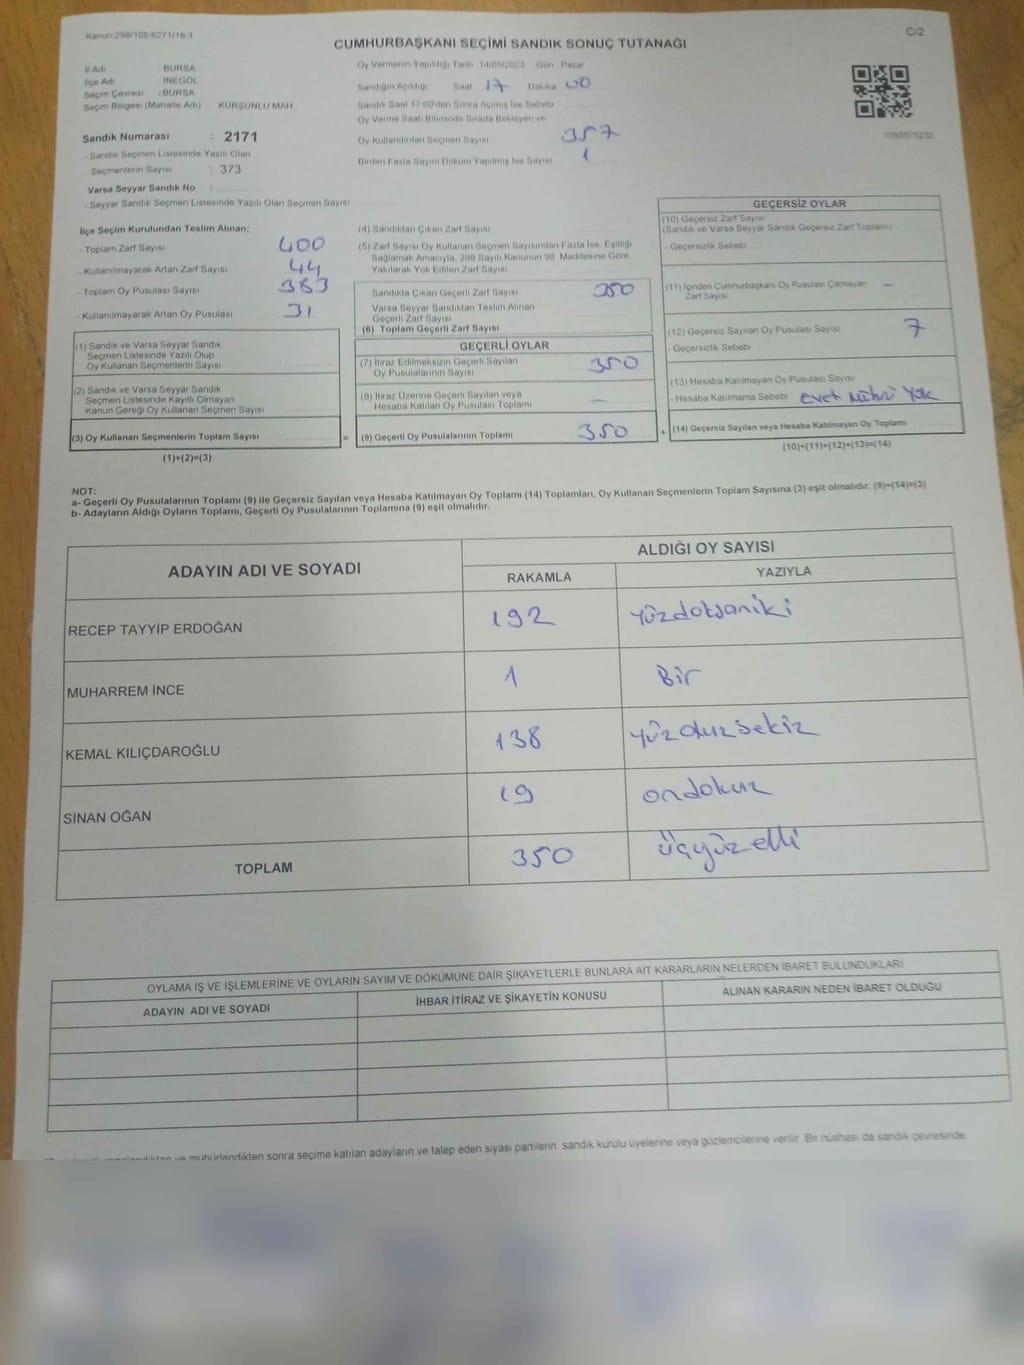 Kanun:298/105-6271/16-1
C/2
CUMHURBAŞKANI SEÇİMİ SANDIK SONUÇ TUTANAĞI
İl Adı BURSA
İlçe Adı İNEGÖL
Seçim Çevresi :BURSA
Seçim Bölgesi (Mahalle Adı) KURŞUNLU MAH
Sandık Numarası : 2171
- Sandık Seçmen Listesinde Yazılı Olan
Seçmenlerin Sayısı : 373
Varsa Seyyar Sandık No :
- Seyyar Sandık Seçmen Listesinde Yazılı Olan Seçmen Sayısı
Oy Vermenin Yapıldığı Tarih 14/05/2023 Gün Pazar
Sandığın Açıldığı Saat 17 Dakika 00
Sandık Saat 17:00'den Sonra Açılmış İse Sebebi
Oy Verme Saati Bitiminde Sırada Bekleyen ve
Oy Kullandırılan Seçmen Sayısı 357
Birden Fazla Sayım Döküm Yapılmış İse Sayısı 1
1093575232
İlçe Seçim Kurulundan Teslim Alınan;
- Toplam Zarf Sayısı 400
- Kullanılmayarak Artan Zarf Sayısı 44
- Toplam Oy Pusulası Sayısı 383
- Kullanılmayarak Artan Oy Pusulası 31
(1) Sandık ve Varsa Seyyar Sandık
Seçmen Listesinde Yazılı Olup
Oy Kullanan Seçmenlerin Sayısı
(2) Sandık ve Varsa Seyyar Sandık
Seçmen Listesinde Kayıtlı Olmayan
Kanun Gereği Oy Kullanan Seçmen Sayısı
(3) Oy Kullanan Seçmenlerin Toplam Sayısı
(1)+(2)=(3)
=
(4) Sandıktan Çıkan Zarf Sayısı
(5) Zarf Sayısı Oy Kullanan Seçmen Sayısından Fazla İse, Eşitliği
Sağlamak Amacıyla, 298 Sayılı Kanunun 98. Maddesine Göre
Yakılarak Yok Edilen Zarf Sayısı
Sandıkta Çıkan Geçerli Zarf Sayısı 350
Varsa Seyyar Sandıktan Teslim Alınan
Geçerli Zarf Sayısı
(6) Toplam Geçerli Zarf Sayısı
GEÇERLİ OYLAR
(7) İtiraz Edilmeksizin Geçerli Sayılan
Oy Pusulalarının Sayısı 350
(8) İtiraz Üzerine Geçerli Sayılan veya
Hesaba Katılan Oy Pusulası Toplamı —
(9) Geçerli Oy Pusulalarının Toplamı 350
+
GEÇERSİZ OYLAR
(10) Geçersiz Zarf Sayısı
(Sandık ve Varsa Seyyar Sandık Geçersiz Zarf Toplamı)
- Geçersizlik Sebebi
(11) İçinden Cumhurbaşkanı Oy Pusulası Çıkmayan —
Zarf Sayısı
(12) Geçersiz Sayılan Oy Pusulası Sayısı 7
- Geçersizlik Sebebi
(13) Hesaba Katılmayan Oy Pusulası Sayısı
- Hesaba Katılmama Sebebi evet mührü yok
(14) Geçersiz Sayılan veya Hesaba Katılmayan Oy Toplamı
(10)+(11)+(12)+(13)=(14)
NOT:
a- Geçerli Oy Pusulalarının Toplamı (9) ile Geçersiz Sayılan veya Hesaba Katılmayan Oy Toplamı (14) Toplamları, Oy Kullanan Seçmenlerin Toplam Sayısına (3) eşit olmalıdır. (9)+(14)=(3)
b- Adayların Aldığı Oyların Toplamı, Geçerli Oy Pusulalarının Toplamına (9) eşit olmalıdır.
ADAYIN ADI VE SOYADI ALDIĞI OY SAYISI
RAKAMLA YAZIYLA
RECEP TAYYİP ERDOĞAN 192 yüzdoksaniki
MUHARREM İNCE 1 Bir
KEMAL KILIÇDAROĞLU 138 yüzotuzsekiz
SİNAN OĞAN 19 ondokuz
TOPLAM 350 üçyüzelli
OYLAMA İŞ VE İŞLEMLERİNE VE OYLARIN SAYIM VE DÖKÜMÜNE DAİR ŞİKAYETLERLE BUNLARA AİT KARARLARIN NELERDEN İBARET BULUNDUKLARI
ADAYIN ADI VE SOYADI İHBAR İTİRAZ VE ŞİKAYETİN KONUSU ALINAN KARARIN NEDEN İBARET OLDUĞU
ve mühürlendikten sonra seçime katılan adayların ve talep eden siyasi partilerin sandık kurulu üyelerine veya gözlemcilerine verilir. Bir nüshası da sandık çevresinde